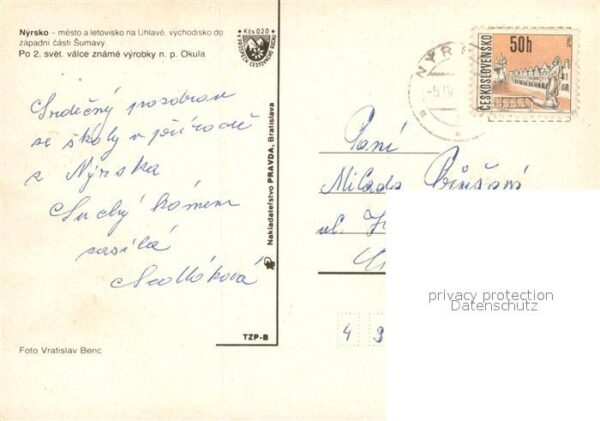 Nýrsko – město a letovisko na Uhlavě, východisko do
západní části Šumavy
Po 2. svět. válce známé výrobky n. p. Okula
Kčs 0,20
Srdečný pozdrav
se školy v přírodě
z Nýrska
Suchý kámen
zasílá
Sedláková
Foto Vratislav Benc
Nakladatelství PRAVDA, Bratislava
TZP-B
NÝRS
-5.IV
ČESKOSLOVENSKO
50h
Paní
Milada
ul.
4 3
privacy protection
Datenschutz